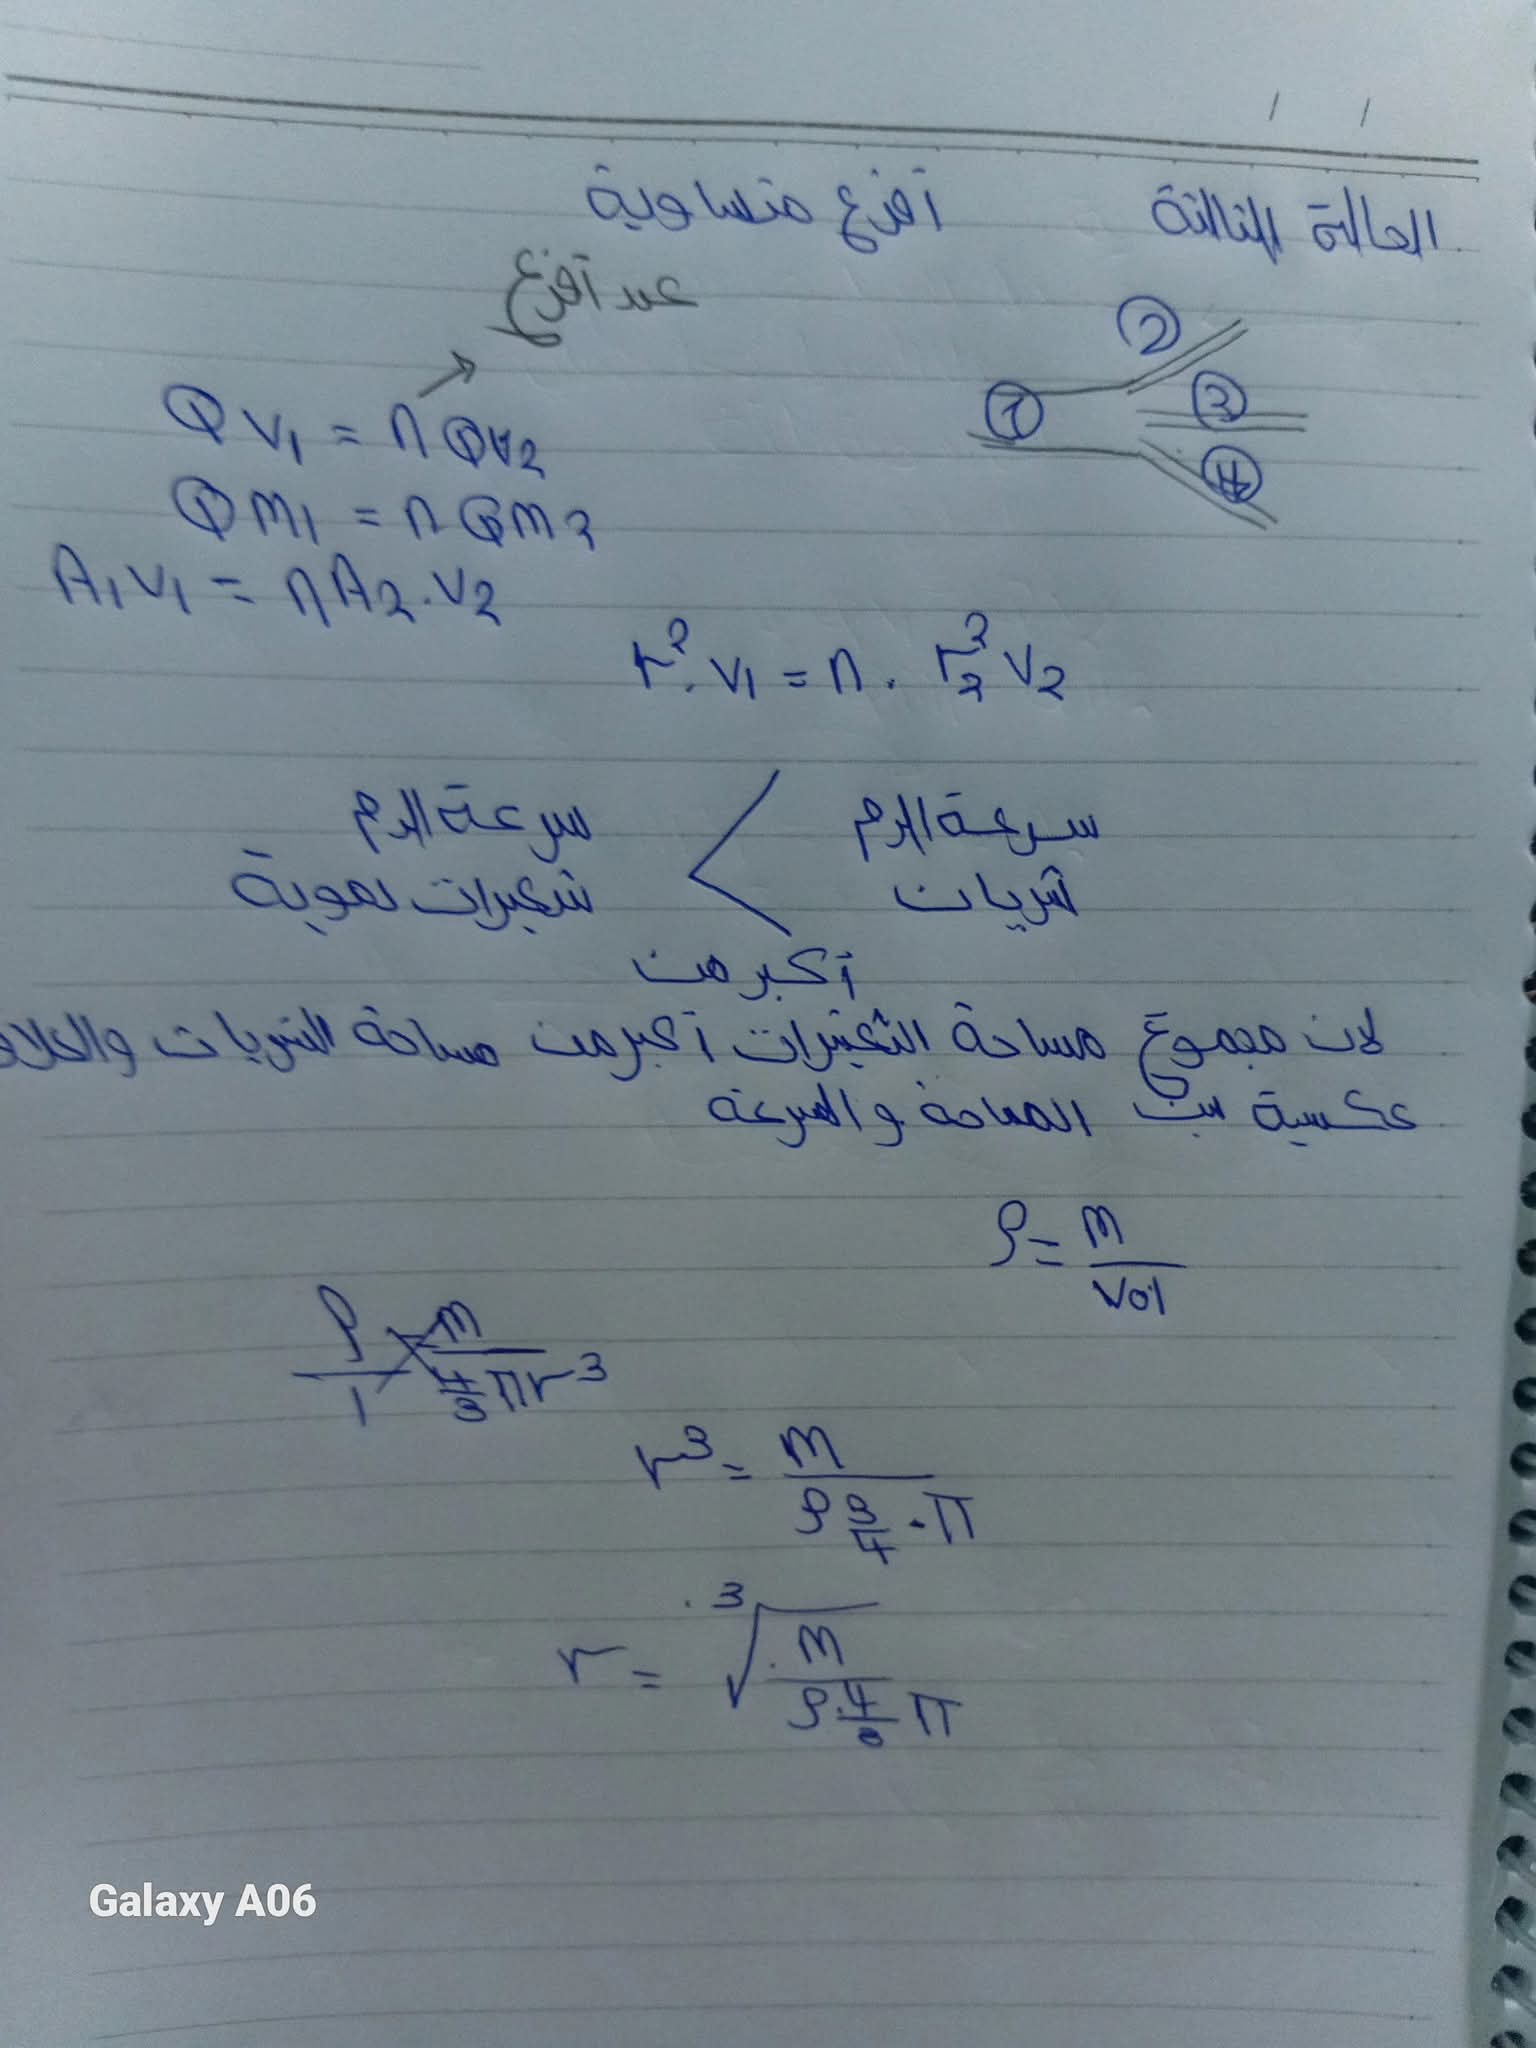 الحالة الثالثة أفرع متساوية
عدد أفرع
① ② ③ ④
Qv1 = n Qv2
Qm1 = n Qm2
A1v1 = nA2.v2
r².v1 = n. r2² v2
سرعة الدم < سرعة الدم
شريان شعيرات دموية
أكبر من
لان مجموع مساحة الشعيرات أكبر من مساحة الشريان
عكسية بين المساحة والسرعة
ρ = m/Vol
ρ/1 = m/(4/3 πr³)
r³ = m/(ρ 3/4 . π)
r = ³√(m/(ρ.4/3 π))
Galaxy A06